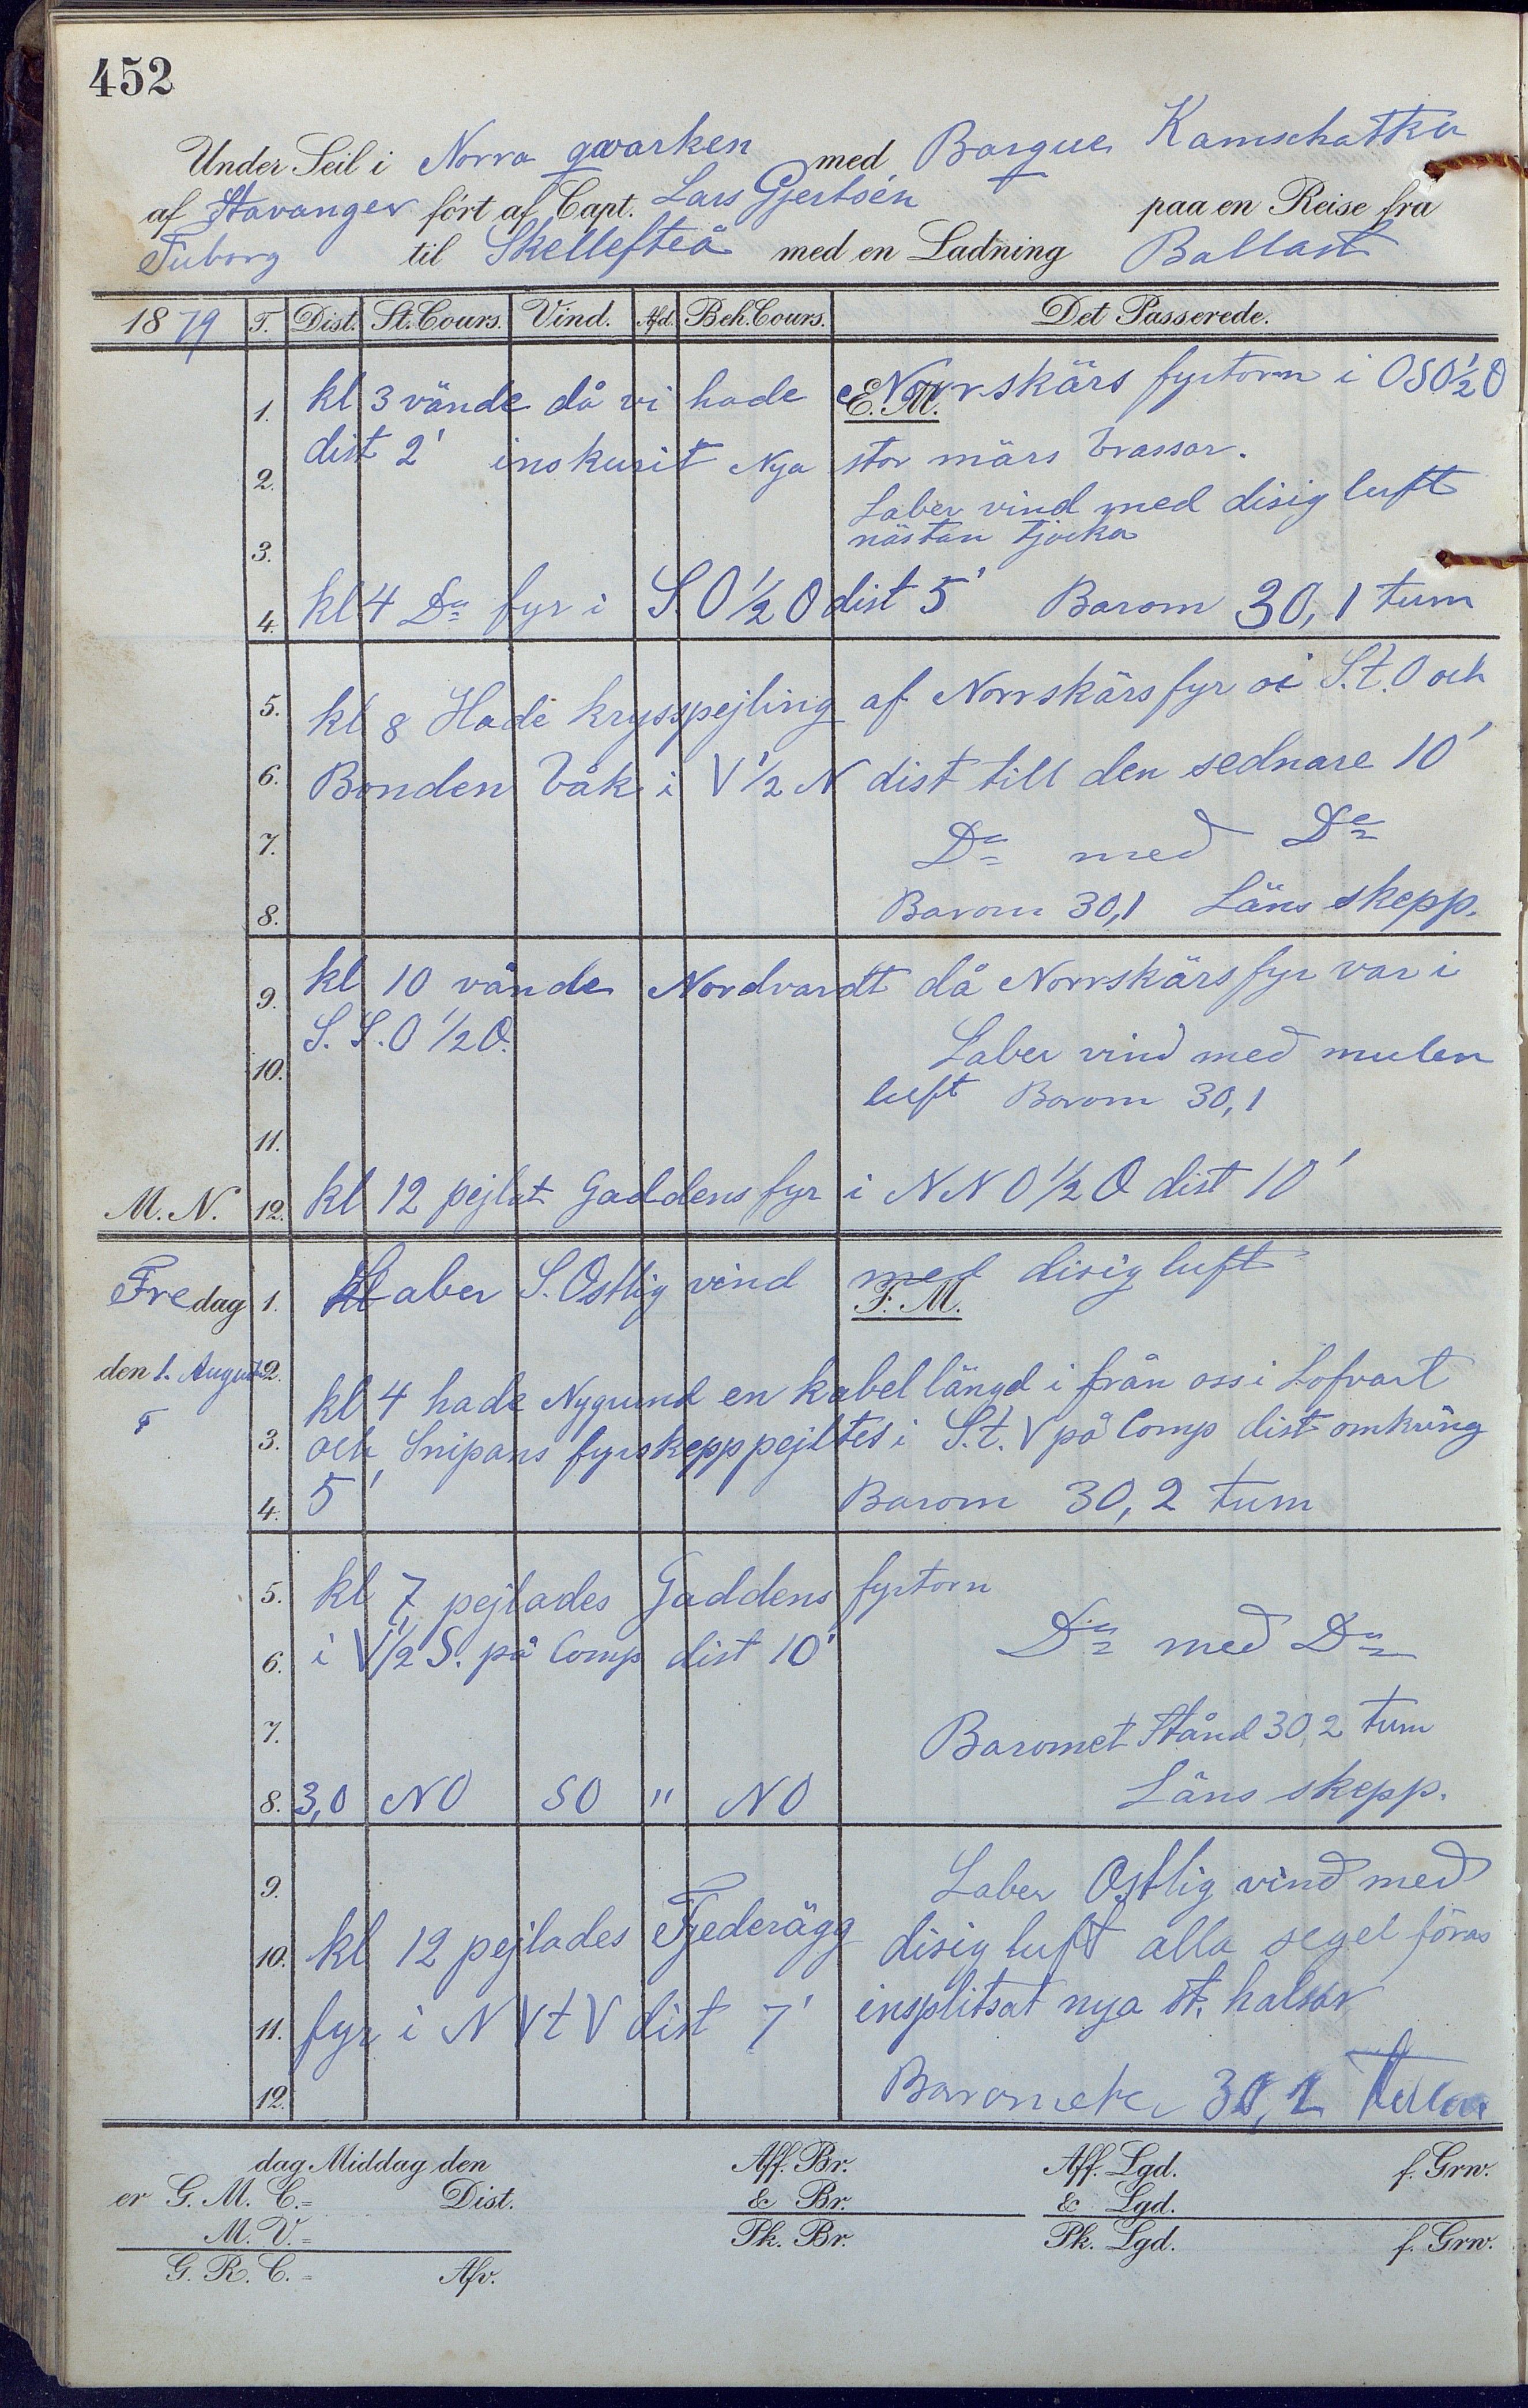 452
Under Seil i Norra qvarken med Barque Kamschatka
af Stavanger ført af Capt. Lars Gjertsén paa en Reise fra
Tuborg til Skellefteå med en Ladning Ballast
1879 T. Dist. St. Cours. Vind. Afd. Beh. Cours. Det Passerede.
E. M.
1. kl 3 vände då vi hade Norrskärs fyrtorn i OSO½O
2. dist 2' inskurit Nya stor märs brassar.
Laber vind med disig luft
3. nästan tjocka
4. kl 4 Do fyr i S.O½O dist 5' Barom 30,1 tum
5. kl 8 Hade krysspejling af Norrskärs fyr i S.t.O och
6. Bonden båk i V½N dist till den sednare 10'
7. Do med Do
8. Barom 30,1 Läns skepp.
9. kl 10 vände Nordvardt då Norrskärs fyr var i
S.S.O½O.
10. Laber vind med mulen
luft Barom 30,1
11.
M. N. 12. kl 12 pejlat Gaddens fyr i NNO½O dist 10'
Fredag 1. Laber S.Ostlig vind med disig luft
F. M.
den 1. August 2.
kl 4 hade Nygrund en kabel längd i från oss i Lofvart
3. och Snipans fyrskepp pejltes i S.t.V på Comp dist omkring
4. 5' Barom 30,2 tum
5. kl 7 pejlades Gaddens fyrtorn
6. i V½S. på Comp dist 10' Do med Do
7. Baromet Stånd 30,2 tum
8. 3,0 NO SO " NO Läns skepp.
9. Laber Ostlig vind med
10. kl 12 pejlades Fjederägg disig luft alla segel föras
11. fyr i NVtV dist 7' insplitsat nya st. halsar
12. Barometer 30,2 Tum
dag Middag den Aff. Br. Aff. Lgd. f. Grw.
er G. M. C.= Dist. & Br. & Lgd.
M. V.= Pk. Br. Pk. Lgd. f. Grw.
G. R. C.= Afv.